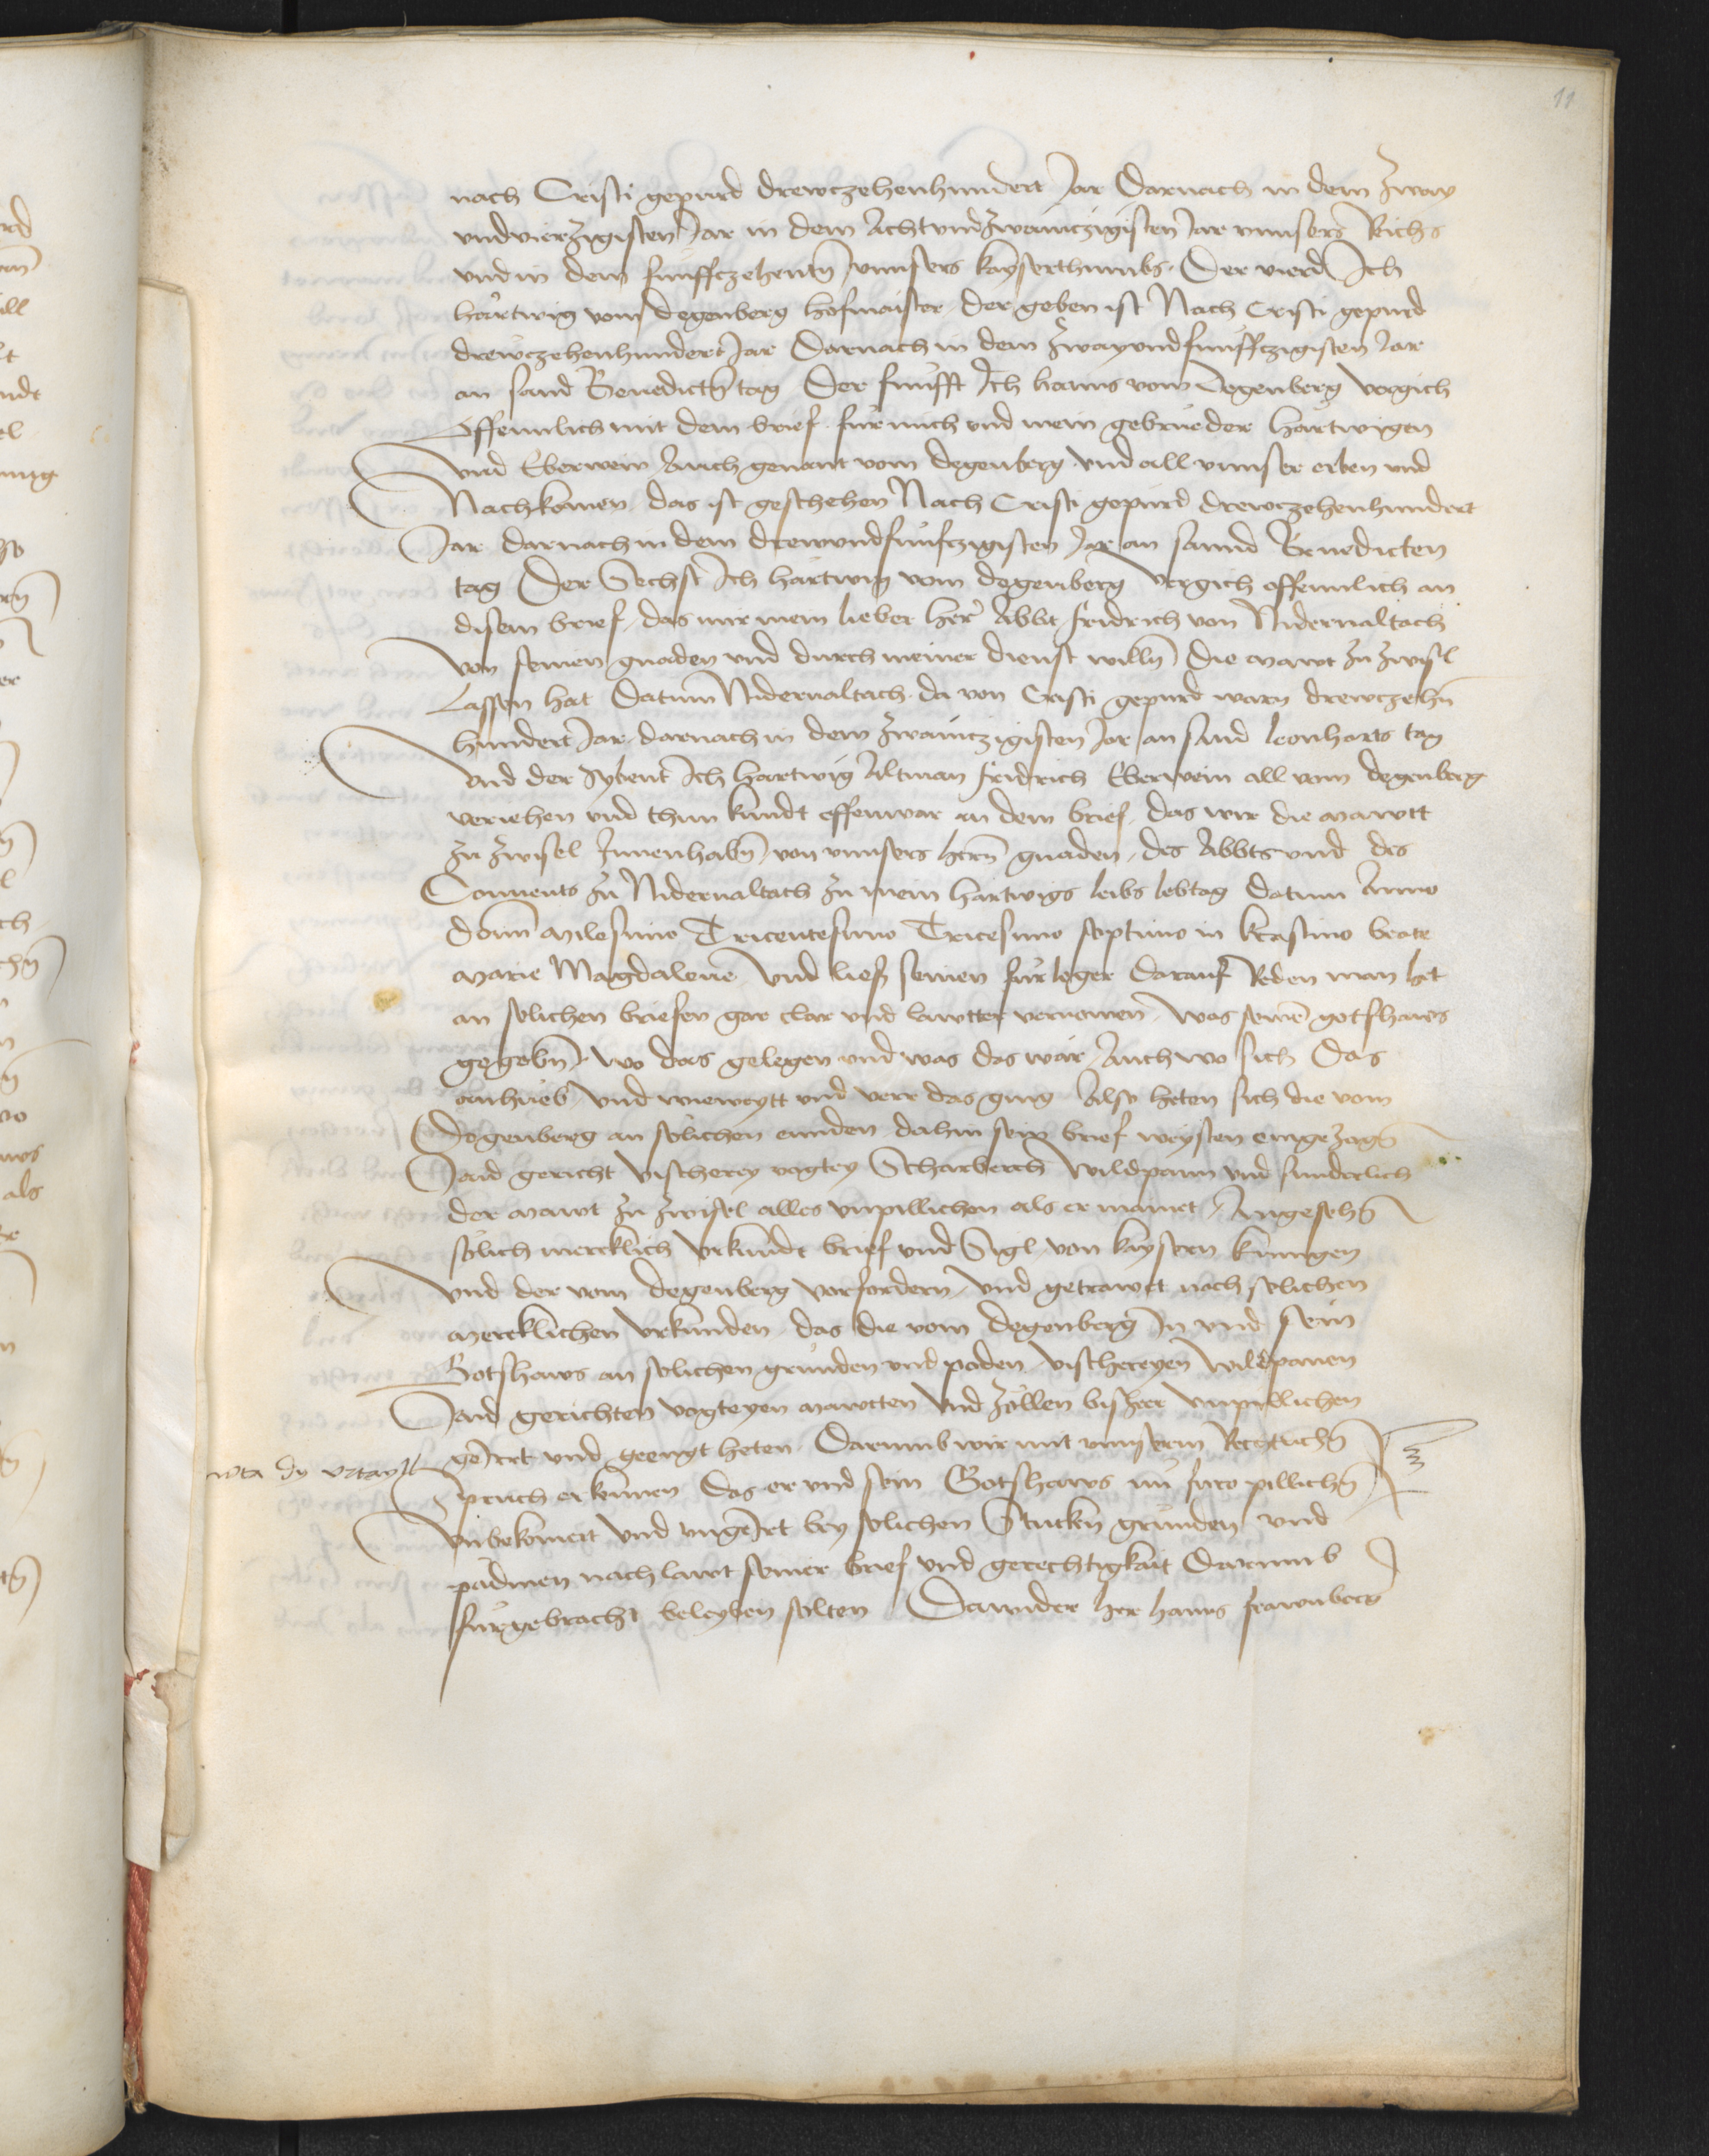 11
nach Cristi gepurd drewczehenhundert Jar Darnach in dem Zway
vndvierzigisten Jar in dem Achtvndzwainczigisten Jar vnnsers Reichs
vnd in dem funffczehentn vnnsers kayserthumbs. Der vierd Ich
hartwig vom degenberg hofmaister der geben ist Nach Cristi gepurd
drewczehenhundert Jar Darnach in dem Zwayvndfunffczigisten Jar
an sand Benedictn tag Der funfft Ich hanns vom Degenberg vergich
offennlich mit dem brief fur mich vnd mein gebrueder hartwigen
vnd Eberwein Auch genant vom degenberg vnd all vnnser erben vnd
Nachkomen das ist geschehen Nach Cristi gepurd drewczehenhundert
Jar darnach in dem drewvndfunfczigisten Jar an sannd Benedicten
tag Der Sechst Ich hartwig vom degenberg vergich offennlich an
disem brief das mir mein lieber her Abbt fridrich von Nidernaltach
von seinen gnaden vnd durch meiner dienst willn die mawt zu zwisl
Lassen hat Datum Nidernaltach da von Cristi gepurd warn drewczehn
hundert Jar darnach in dem Zwainczigisten Jar an sand leonharts tag
vnd der Sybent Ich hartwig Altman fridrich Eberwein all vom degenberg
veriehen vnd thun kundt offenwar an dem brief das wir die mawtt
zu zwisel Innenhabn von vnnsers hern gnaden des Abbts vnd des
Conuents zu Nidernaltach zu mein hartwigs leibs lebtag datum Anno
domi milesimo Tricentesimo Tricesimo septimo in krastino beate
marie Magdalene Vnd lies seinen furleger darauf Reden man het
an solichen briefen gar clar vnd lawtter vernomen was seine gotshaws
gegebn wo das gelegen vnd was das wär Auch wo sich Das
anhueb vnd wieweytt vnd verr das ging Also heten sich die vom
Degenberg an solichen ennden dahin sein brief weysten eingezogn
Jaid gericht vischerey vogtey Scharberch wildpann vnd sunderlich
der mawt zu zwisel alles vnpillichen als er mainet Angesehn
solich mercklich vrkundt brief vnd Sigl von kaysern kunigen
vnd der vom degenberg vorfordern vnd getrawet nach solichen
mercklichen vrkunden das die vom degenberg In vnd sein
Gotshaws an solichen grunden vnd poden vischereyen wildpanen
Jaid gerichten vogteyen mawtten vnd zollen bisher vnpillichen
geirrt vnd geengt heten Darumb wir mit vnnserm Rechtlichn
nota dy vrtayll
Spruch erkennen das er vnd sein Gotshaws nu furo pillichn
vnbekomert vnd vngeirt bey solichen Stuckn grunden vnd
padmen nach lawt seiner brief vnd gerechtigkait Darumb
furgebracht beleyben solten Dawider her hanns frawnberg